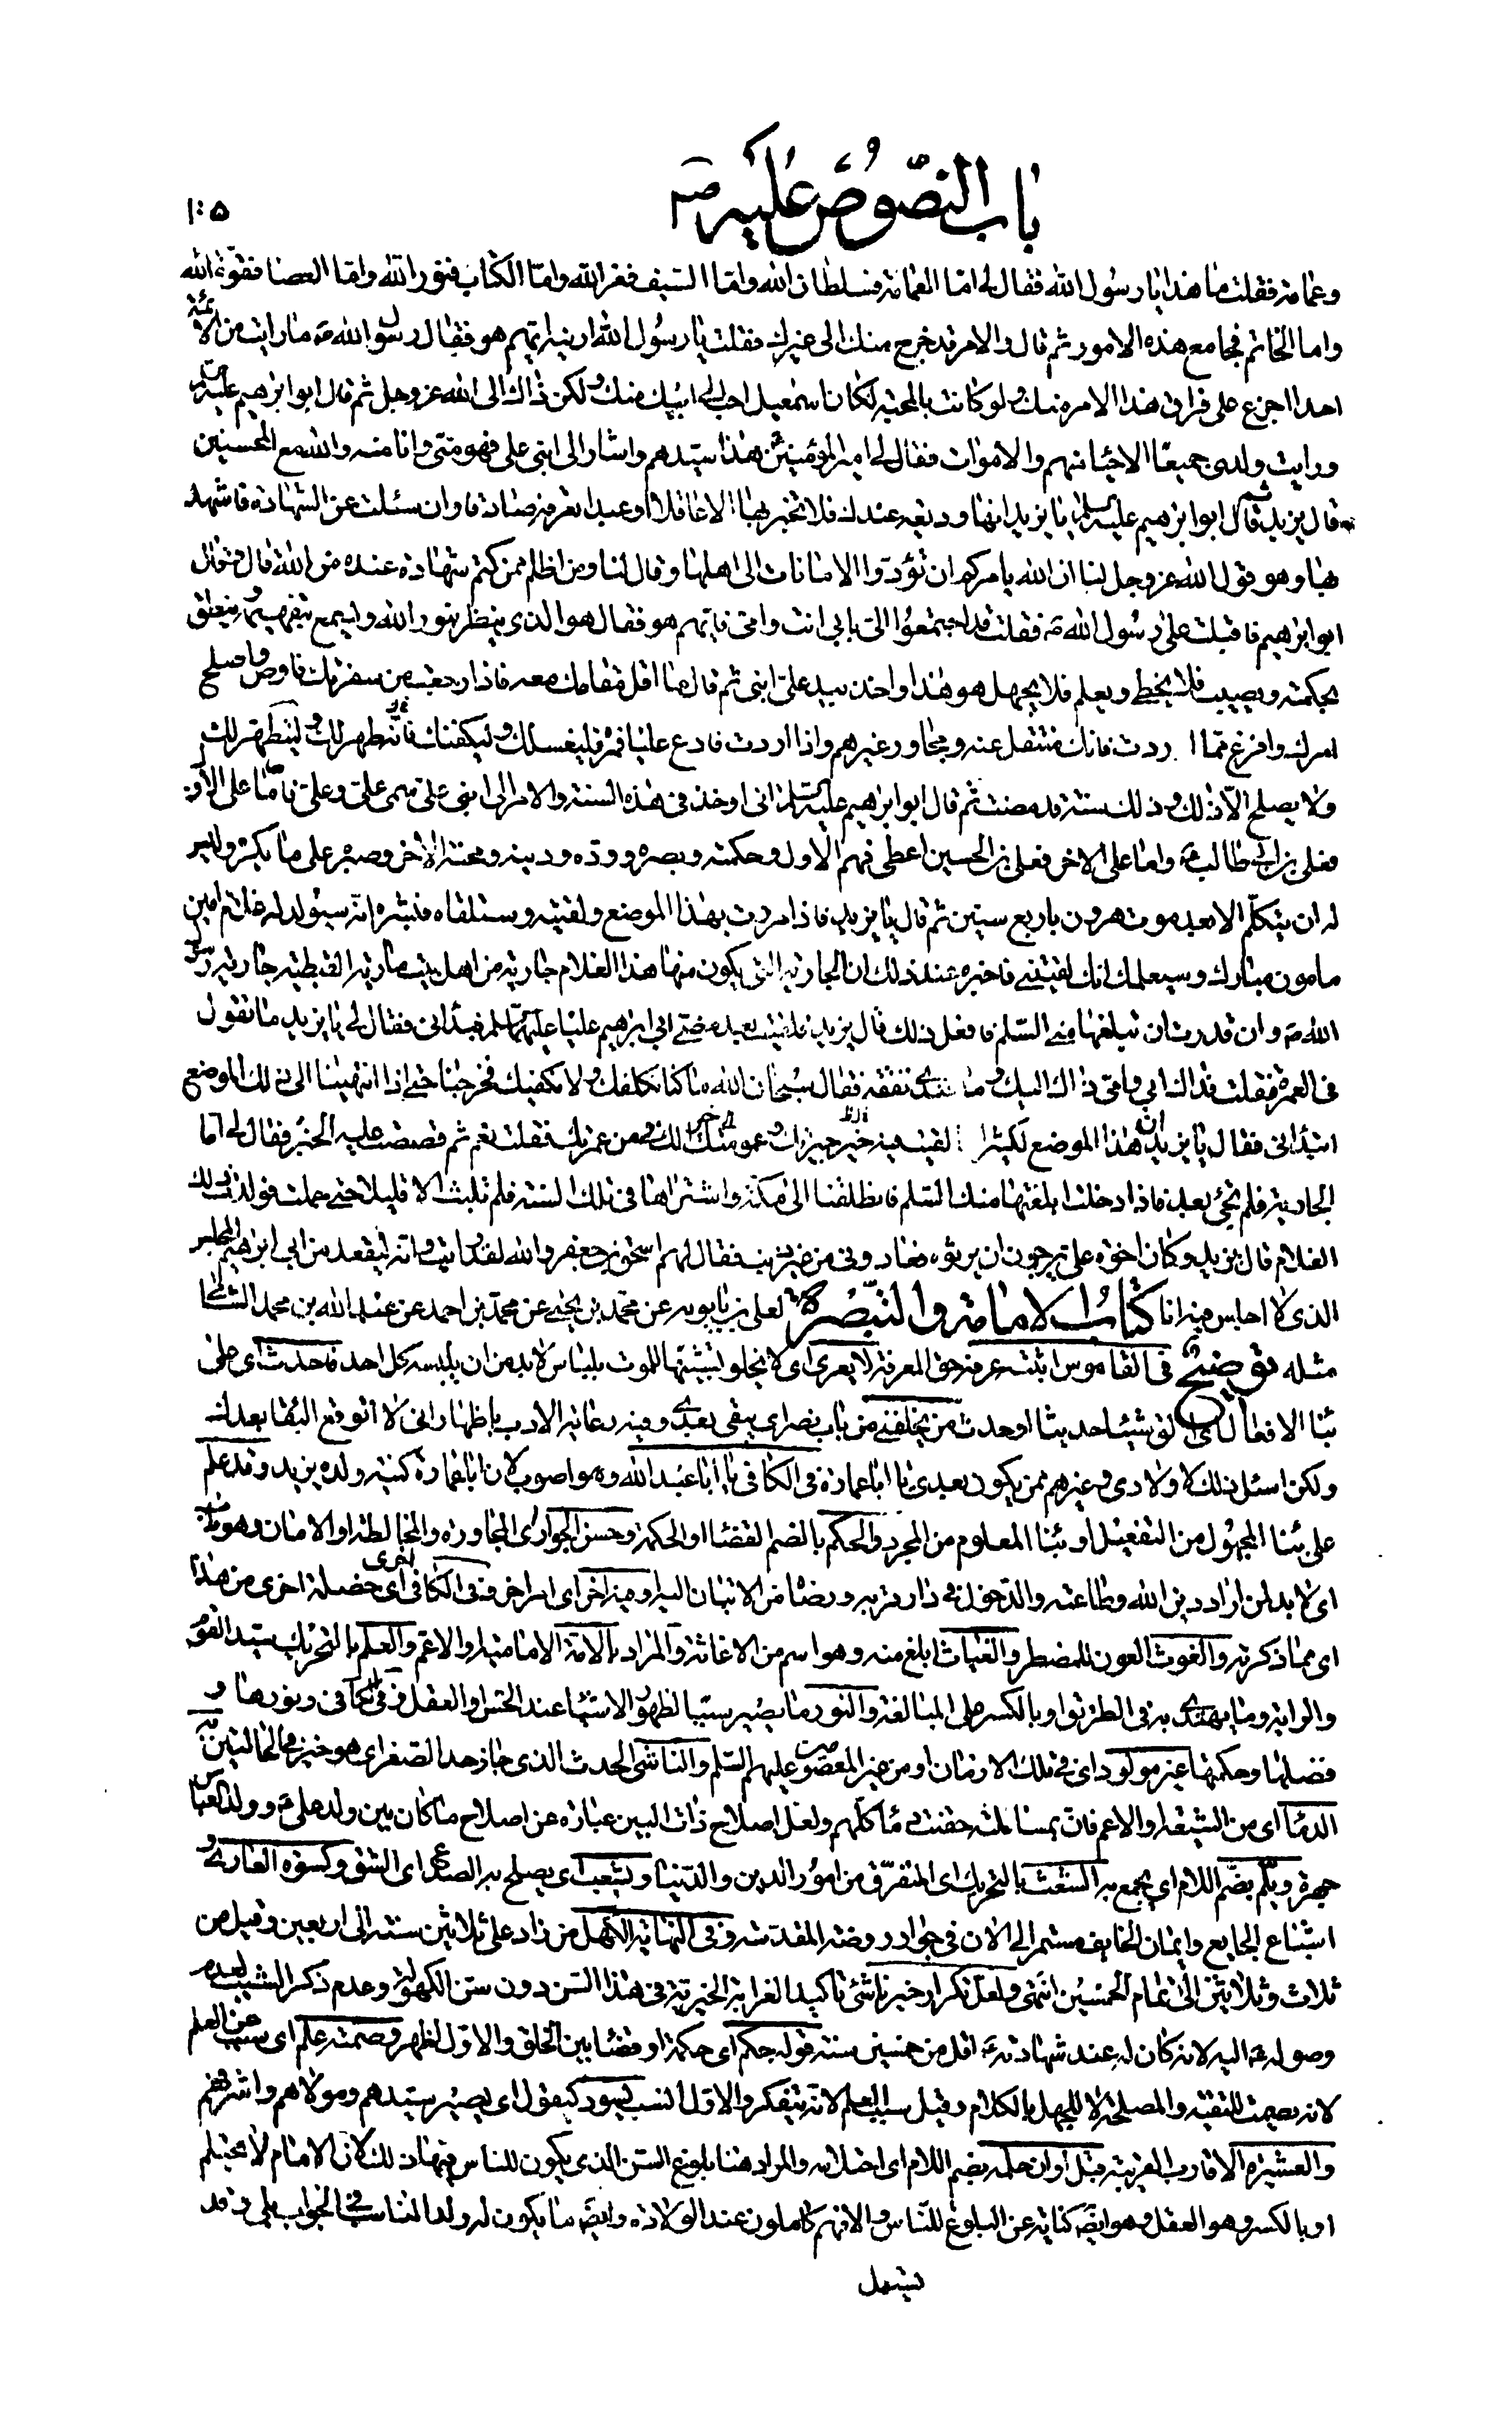 باب النصوص عليه ص
١٠۵
وعمامة فقلت ما هذا يا رسول الله فقال لي اما العمامة فسلطان الله واما السيف فعز الله واما الكتاب فنور الله واما العصا فقوة الله
واما الخاتم فجامع هذه الامور ثم قال والامر قد خرج منك الى غيرك فقلت يا رسول الله ارنيه ايهم هو فقال رسول الله ص ما رايت من الائمة
احدا اجزع على فراق هذا الامر منك ولو كانت بالمحبة لكان اسمعيل احب الى ابيك منك ولكن ذاك الى الله عز وجل ثم قال ابو ابرهيم عليه السلم
ورايت ولدي جميعا الاحياء منهم والاموات فقال لي امير المؤمنين ع هذا سيدهم واشار الى ابني علي فهو مني وانا منه والله مع المحسنين
قال يزيد ثم قال ابو ابرهيم عليه السلم يا يزيد انها وديعة عندك فلا تخبر بها الا عاقلا او عبدا تعرفه صادقا وان سئلت عن الشهادة فاشهد
بها وهو قول الله عز وجل لنا ان الله يامركم ان تؤدوا الامانات الى اهلها وقال لنا ومن اظلم ممن كتم شهادة عنده من الله قال وقال
ابو ابرهيم فاقبلت على رسول الله ص فقلت قد اجتمعوا الي بابي انت وامي فايهم هو فقال هو الذي ينظر بنور الله ويسمع بتفهيمه وينطق
بحكمته ويصيب فلا يخطي ويعلم فلا يجهل هو هذا واخذ بيد علي ابني ثم قال ما اقل مقامك معه فاذا رجعت من سفرتك فاوص واصلح
امرك وافرغ مما اردت فانك منتقل عنه ومجاور غيرهم واذا اردت فادع عليا فمره فليغسلك وليكفنك فانه طهر لك وليتطهر لك
ولا يصلح الا ذلك وذلك سنة قد مضت ثم قال ابو ابرهيم عليه السلم اني اوخذ في هذه السنة والامر الى ابني علي سمي علي وعلي فاما علي الاول
فعلي بن ابي طالب ع واما علي الاخر فعلي بن الحسين اعطي فهم الاول وحكمته وبصره ووده ودينه ومحنة الاخر وصبره على ما يكره وليس
له ان يتكلم الا بعد موت هرون باربع سنين ثم قال يا يزيد فاذا مررت بهذا الموضع ولقيته وستلقاه فبشره انه سيولد له غلام امين
مامون مبارك وسيعلمك انك لقيتني فاخبره عند ذلك ان الجارية التي يكون منها هذا الغلام جارية من اهل بيت مارية القبطية جارية رسول
الله ص وان قدرت ان تبلغها مني السلم فافعل ذلك قال يزيد فلقيت بعد مضي ابي ابرهيم عليا عليهما السلم فبدأني فقال لي يا يزيد ما تقول
في العمرة فقلت فداك ابي وامي ذاك اليك وما عندي نفقة فقال سبحان الله ما كنا نكلفك ولا نكفيك فخرجنا حتى اذا انتهينا الى ذلك الموضع
ابتدأني فقال يا يزيد ان هذا الموضع لكثيرا لقيت فيه خير جيرانك وعمومتك لك ومن عمرتك فقلت نعم ثم قصصت عليه الخبر فقال لي اما
الجارية فلم تجئ بعد فاذا دخلت ابلغتها منك السلم فانطلقنا الى مكة واشتراها في تلك السنة فلم تلبث الا قليلا حتى حملت فولدت ذلك
الغلام قال يزيد وكان اخوة علي يرجون ان يرثوه فعادوني من غير ذنب فقال لهم اسحق بن جعفر والله لقد رايته وانه ليقعد من ابي ابرهيم المجلس
الذي لا اجلس فيه انا كتاب الامامة والتبصرة لعلي بن بابويه عن محمد بن يحيى عن محمد بن احمد عن عبد الله بن محمد الشامي
مثله توضيح في القاموس اثبته عرفه حق المعرفة لا يعرى اي لا يخلو تشبيها للموت بلباس لا بد من ان يلبسه كل احد فاحدث اي على
بناء الافعال اي الق شيئا حديثا او حدث من يخلفني من باب نصر اي يبقى بعدي وفيه رعاية الادب باظهار اني لا اتوقع البقاء بعدك
ولكن اسئل ذلك لاولادي وغيرهم ممن يكون بعدي يا ابا عمارة في الكافي يا ابا عبد الله وهو اصوب لان ابا عمارة كنية ولده يزيد وقد علم
على بناء المجهول من التفعيل او بناء المعلوم من المجرد والحكم بالضم القضاء او الحكمة وحسن الجوار اي المجاورة والمخالطة او الامان وهو باب
اي لا بد لمن اراد دين الله وطاعته والدخول في دار قربه ورضاه من الاتيان اليه وفيه اخر اي امر اخر وفي الكافي اخرى اي خصلة اخرى من هذا
اي مما ذكرته والغوث العون للمضطر والغياث ابلغ منه وهو اسم من الاغاثة والمراد بالامة الامامية او الاعم والعلم بالتحريك سيد القوم
والراية وما يهتدى به في الطريق او بالكسر على المبالغة والنور ما يصير سببا لظهور الاشياء عند الحس او العقل وفي الكافي ونورها و
فضلها وحكمتها غير مولود اي في تلك الازمان او من غير المعصومين عليهم السلم والناشي الحدث الذي جاز حد الصغر اي هو خير في الحالتين به
الدماء اي من الشيعة او الاعم فان بمسالمته حقنت دماء كلهم ولعل اصلاح ذات البين عبارة عن اصلاح ما كان بين ولد علي ع وولد العباس
جهرة ويلم بضم اللام اي يجمع به الشعث بالتحريك اي المتفرق من امور الدين والدنيا ويشعب اي يصلح به الصدع اي الشق وكسوة العاري و
اشباع الجايع وايمان الخايف مستمر الى الان في جوار روضته المقدسة وفي النهاية الكهل من زاد على ثلاثين سنة الى اربعين وقيل من
ثلاث وثلاثين الى تمام الخمسين انتهى ولعل تكرار خير ناشئ تاكيد لغرابة الخيرية في هذا السن دون سن الكهولة وعدم ذكر الشيب لعدم
وصوله ع اليه لانه كان له عند شهادته ع اقل من خمسين سنة قوله حكم اي حكمة او قضاء بين الخلق والاول اظهر وصمته علم اي سبب عن العلم
لانه يصمت للتقية والمصلحة لا للجهل بالكلام وقيل سبب للعلم لانه يتفكر والاول انسب يسود كيقول اي يصير سيدهم ومولاهم واشرفهم
والعشيرة الاقارب القريبة قبل اوان حلمه بضم اللام اي احتلامه والمراد هنا بلوغ السن الذي يكون للناس فيها ذلك لان الامام لا يحتلم
او بالكسر وهو العقل وهو ايضا كناية عن البلوغ للناس والا فهم كاملون عند الولادة وايضا ما يكون له ولد المناسب في الجواب بلى وقد
يستعمل